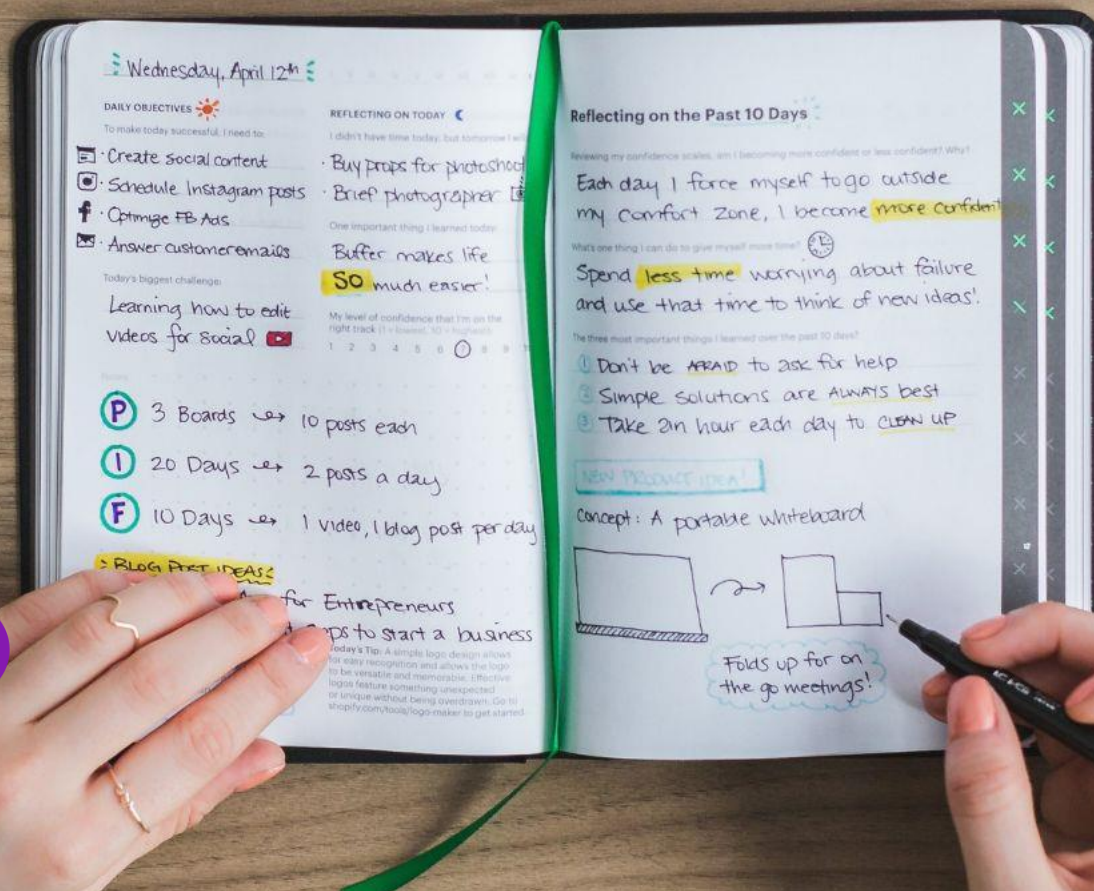 Wednesday, April 12th
DAILY OBJECTIVES
To make today successful, I need to:
· Create social content
· Schedule Instagram posts
f · Optimize FB Ads
· Answer customer emails
Today's biggest challenge:
Learning how to edit
videos for social
REFLECTING ON TODAY
I didn't have time today, but tomorrow I will
· Buy props for photoshoot
· Brief photographer
One important thing I learned today:
Buffer makes life
SO much easier!
My level of confidence that I'm on the
right track (1 = lowest, 10 = highest)
1 2 3 4 5 6 7 8 9
Notes
P 3 Boards 10 posts each
I 20 Days 2 posts a day
F 10 Days 1 video, 1 blog post per day
BLOG POST IDEAS
for Entrepreneurs
to start a business
Today's Tip: A simple logo design allows
for easy recognition and allows the logo
to be versatile and memorable. Effective
logos feature something unexpected
or unique without being overdrawn. Go to
shopify.com/tools/logo-maker to get started
Reflecting on the Past 10 Days
Reviewing my confidence scales, am I becoming more confident or less confident? Why?
Each day I force myself to go outside
my comfort zone, I become more confident
What's one thing I can do to give myself more time?
Spend less time worrying about failure
and use that time to think of new ideas!
The three most important things I learned over the past 10 days?
1 Don't be AFRAID to ask for help
2 Simple solutions are ALWAYS best
3 Take an hour each day to CLEAN UP
NEW PRODUCT IDEA!
Concept: A portable whiteboard
Folds up for on
the go meetings!